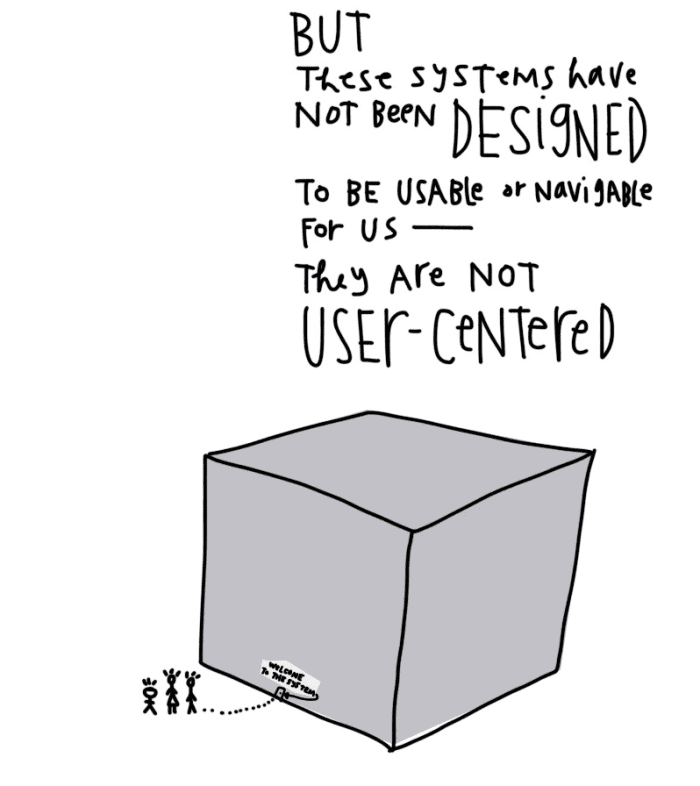 BUT
These systems have
NOT BeeN DESigNED
To BE USABle or NavigABle
For US —
They Are NOT
USEr-CeNTereD
WELCOME
To THE SYSTEM